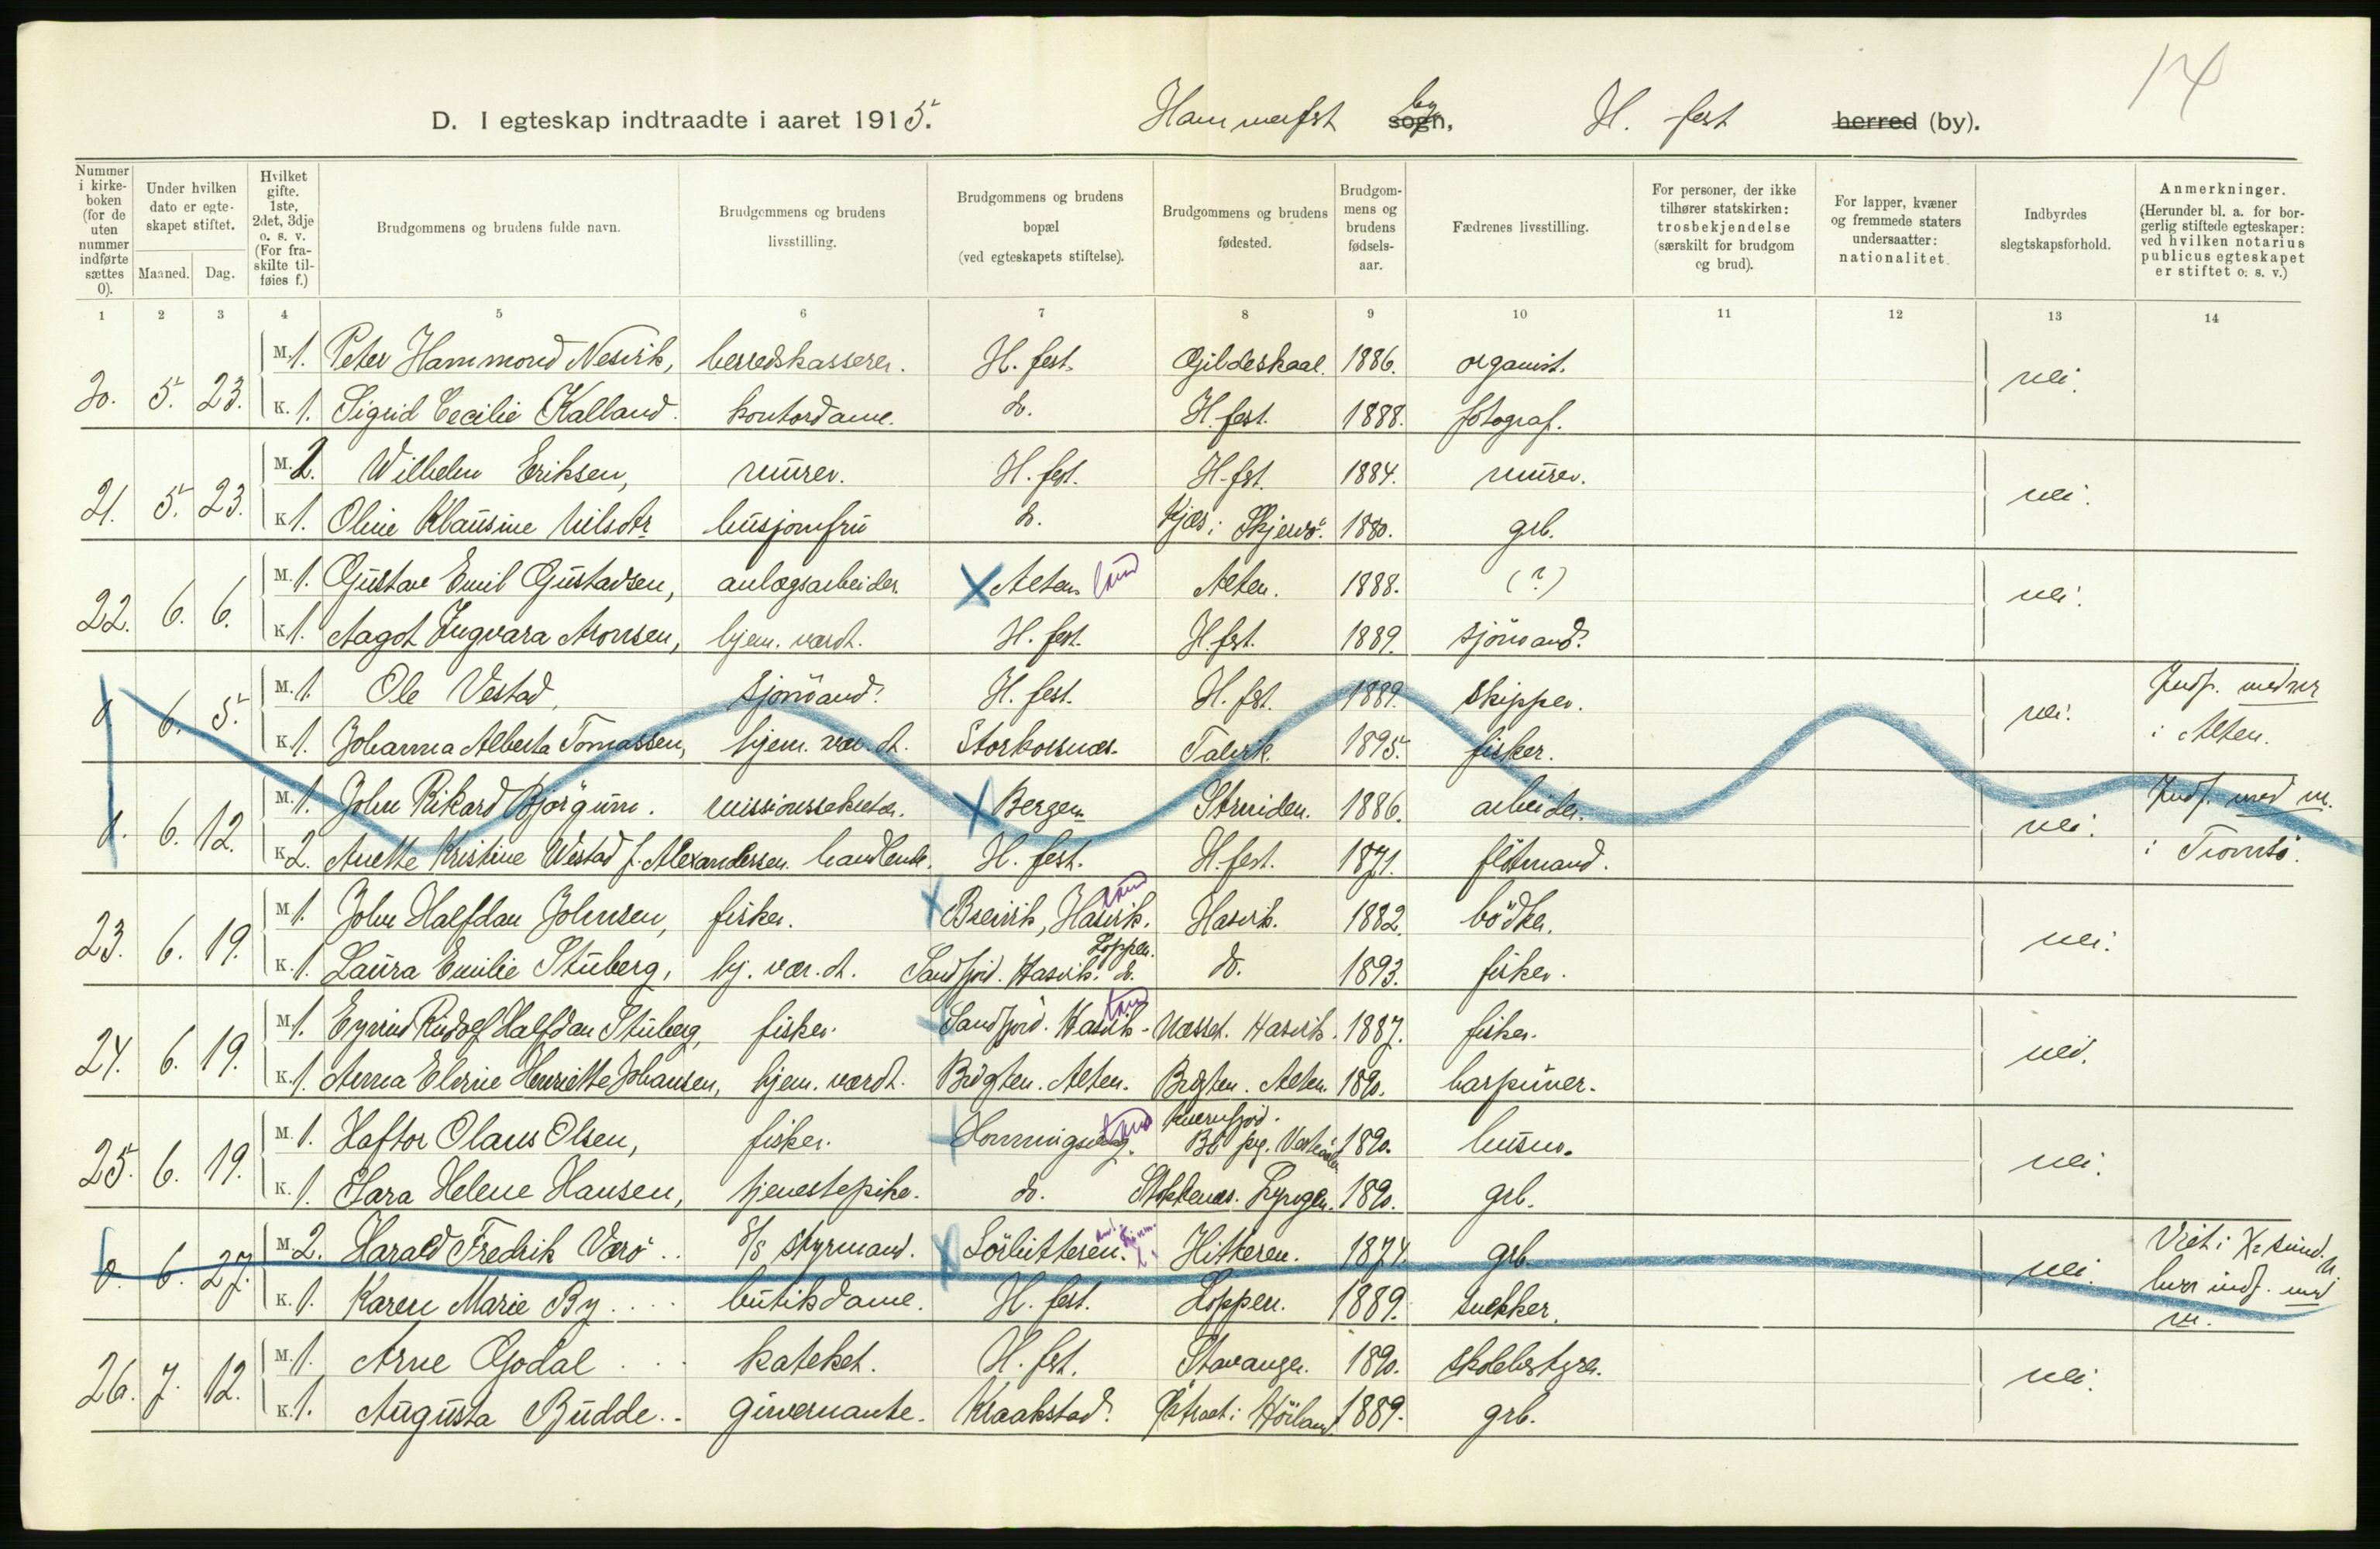 14
D. I egteskap indtraadte i aaret 1915. Hammerfest sogn, by H. fest herred (by).
Nummer i kirkeboken (for de uten nummer indførte sættes 0). Under hvilken dato er egteskapet stiftet. Maaned. Dag. Hvilket gifte. 1ste, 2det, 3dje o. s. v. (For fraskilte tilføies f.) Brudgommens og brudens fulde navn. Brudgommens og brudens livsstilling. Brudgommens og brudens bopæl (ved egteskapets stiftelse). Brudgommens og brudens fødested. Brudgommens og brudens fødselsaar. Fædrenes livsstilling. For personer, der ikke tilhører statskirken: trosbekjendelse (særskilt for brudgom og brud). For lapper, kvæner og fremmede staters undersaatter: nationalitet. Indbyrdes slegtskapsforhold. Anmerkninger. (Herunder bl. a. for borgerlig stiftede egteskaper: ved hvilken notarius publicus egteskapet er stiftet o. s. v.)
1 2 3 4 5 6 7 8 9 10 11 12 13 14
M. 1. Peter Hammond Nesvik, herredskasserer. H. fest. Gildeskaal. 1886. organist.
20. 5. 23. nei.
K. 1. Sigrid Cecilie Kalland. kontordame. do. H. fest. 1888. fotograf.
M. 2. Wilhelm Eriksen, murer. H. fest. H. fest. 1884. murer.
21. 5. 23. nei.
K. 1. Oline Klausine Nilsdtr husjomfru do. Kjæs i Skjervö. 1880. grb.
M. 1. Gustav Emil Gustavsen, anlægsarbeider. X Alten land Alten. 1888. (?)
22. 6. 6. nei.
K. 1. Aagot Ingvara Aronsen, hjem. værd. H. fest. H. fest. 1889. sjömand.
M. 1. Ole Vestad, sjömand. H. fest. H. fest. 1889. skipper. Indf. med nr
0. 6. 5. nei.
K. 1. Johanna Alberta Tomassen, hjem. vær. dt. Storkorsnæs. Talvik. 1895. fisker. i Alten.
M. 1. John Rikard Björgum. missionssekretær. X Bergen Strinden. 1886. arbeider. Indf. med nr.
0. 6. 12. nei.
K. 2. Anette Kristine Westad f. Alexandersen. handlende. H. fest. H. fest. 1871. flötmand. i Tromsö.
M. 1. John Halfdan Johnsen, fisker. X Breivik, Hasvik. land Hasvik. 1882. bödker.
23. 6. 19. nei.
K. 1. Laura Emilie Stuberg, hj. vær. dt. Sandfjord. Hasvik. Loppen. do. do. 1893. fisker.
M. 1. Eyvind Rudolf Halfdan Stuberg, fisker. Sandfjord. Hasvik. land Næsset. Hasvik. 1887. fisker.
24. 6. 19. nei.
K. 1. Anna Elvine Henriette Johansen, hjem. værdt. Bugten. Alten. Bugten. Alten. 1890. harpuner.
M. 1. Haftor Olaus Olsen, fisker. Honningsvaag. land Kvernfjord. 1890. husm.
25. 6. 19. nei.
K. 1. Clara Helene Hansen, tjenestepike. do. Stokkenæs. Lyngen. 1890. grb.
M. 2. Harald Fredrik Værö.. S/S styrmand. X Sörhitteren. Hitteren. 1874. grb. Viet i Kr.sund N.
0. 6. 27. nei.
K. 1. Karen Marie By .... butikdame. H. fest. Loppen. 1889. snekker. hvor indf. med nr.
M. 1. Arne Godal ... kateket. H. fest. Stavanger. 1890. skolebestyrer.
26. 7. 12. nei.
K. 1. Augusta Budde.. guvernante. Kraakstad. Östraat i Höiland 1889. grb.